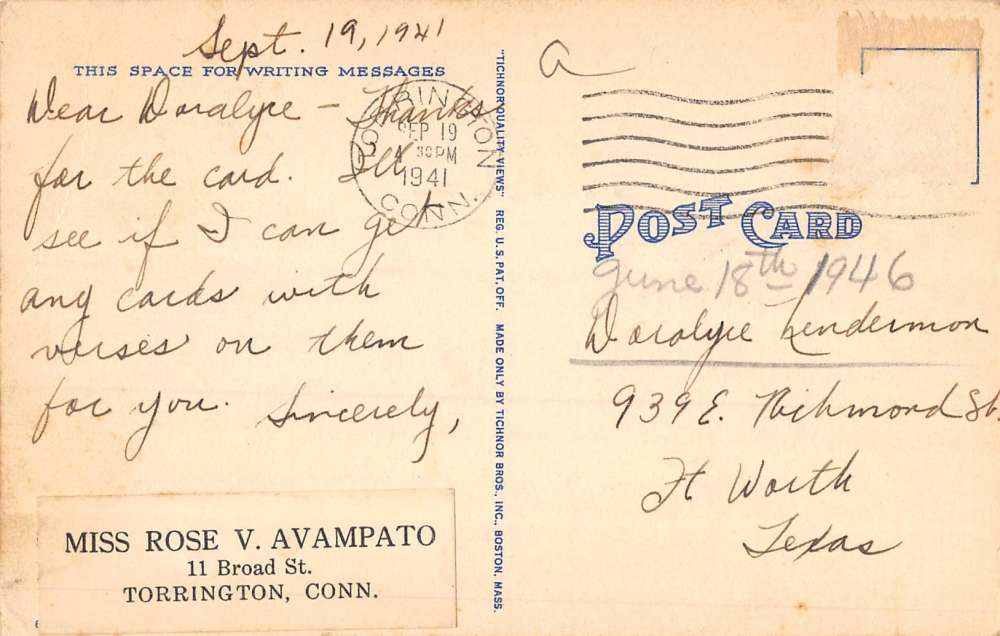 Sept. 19, 1941
THIS SPACE FOR WRITING MESSAGES
Dear Doralyre – Thanks
for the card. I'll
see if I can get
any cards with
verses on them
for you. Sincerely,
MISS ROSE V. AVAMPATO
11 Broad St.
TORRINGTON, CONN.
TORRINGTON
SEP 19
30 PM
1941
CONN.
"TICHNOR QUALITY VIEWS" REG. U. S. PAT. OFF. MADE ONLY BY TICHNOR BROS., INC., BOSTON, MASS.
a
POST CARD
June 18th 1946
Doralyre Lendermon
939 E. Richmond St.
Ft Worth
Texas